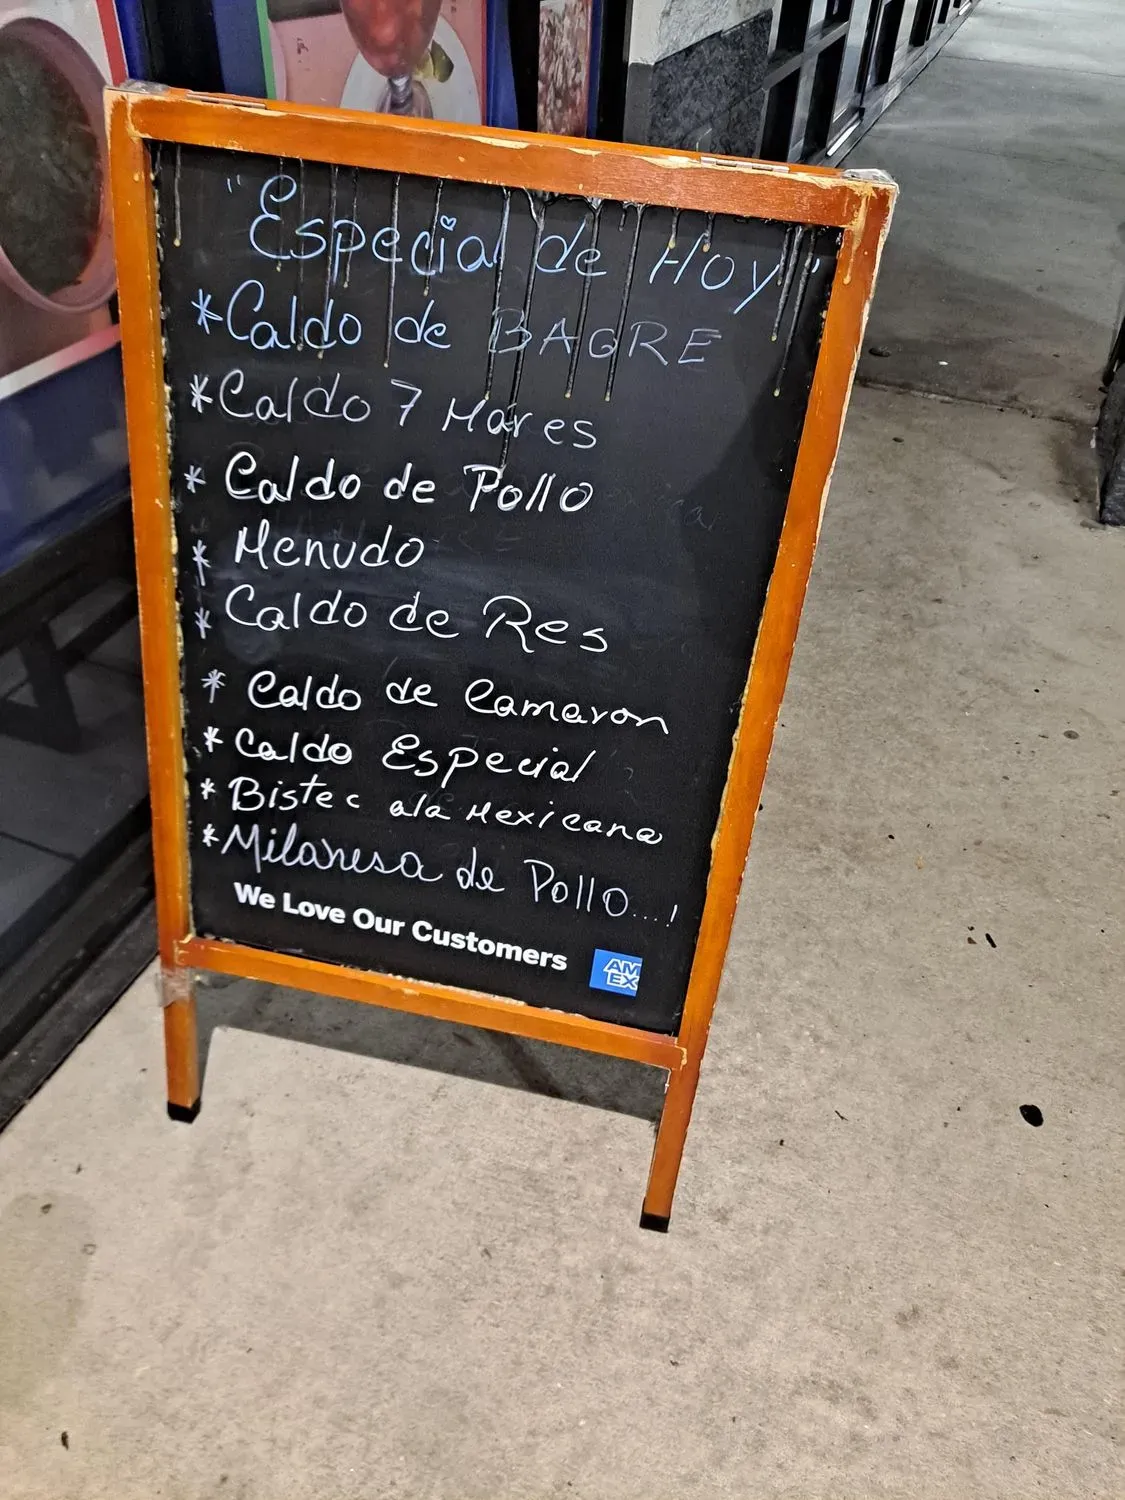 "Especial de Hoy"
*Caldo de BAGRE
*Caldo 7 Mares
* Caldo de Pollo
* Menudo
* Caldo de Res
* Caldo de Camaron
* Caldo Especial
* Bistec ala Mexicana
*Milanesa de Pollo...!
We Love Our Customers
AM
EX